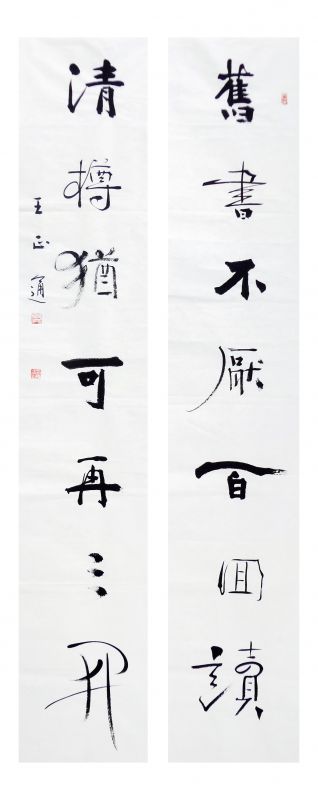 舊書不厭百回讀
清樽猶可再三開
王正通